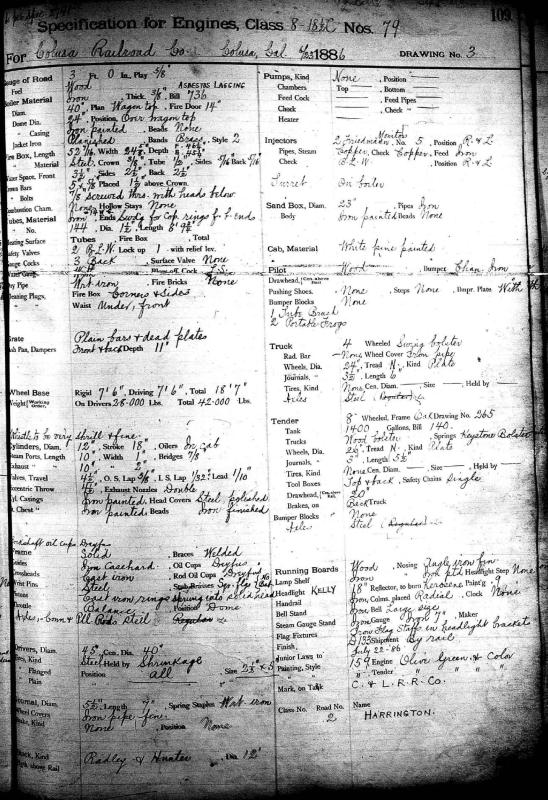 109
Specification for Engines, Class 8-18½C Nos. 79
For Colusa Railroad Co. Colusa, Cal. 1886 DRAWING No. 3
Gauge of Road 3 Ft. 0 In., Play 5/8"
Fuel Wood ASBESTOS LAGGING
Boiler Material Iron Thick 3/8" Bill 736
Diam. 40" Plan Wagon top, Fire Door 14"
Dome Dia. 24" Position Over wagon top
Casing Iron painted, Beads None
Jacket Iron Planished Bands Brass, Style 2
Fire Box, Length 52 7/16 Width 24
Material Steel, Crown 3/8" Tube 1/2 Sides 5/16 Back 5/16
Water Space, Front 3½" Sides 2½" Back 2½"
Crown Bars 5 x 7/8 Placed 1½ above Crown
Bolts 7/8 screwd thro. with heads below
Combustion Cham. None Hollow Stays None
Tubes, Material Iron Ends Swdg for Cop. rings f. F. ends
No. 144 Diam. 1½" Length 8' 9½"
Heating Surface Tubes Fire Box , Total
Safety Valves 2 B.L.W Lock up 1 with relief lev.
Gauge Cocks 3 Back , Surface Valve None
Water Gauge, Blow off Cock
Dry Pipe Wrt iron , Fire Bricks None
Cleaning Plugs, Fire Box Corners & Sides
Waist Under, front
Grate Plain bars & dead plates
Ash Pan, Dampers Front & back Depth 11"
Wheel Base Rigid 7' 6", Driving 7' 6", Total 18' 7"
Weight [Working Order] On Drivers 28.000 Lbs. Total 42.000 Lbs.
Whistle to be very shrill & fine
Cylinders, Diam. 12" Stroke 18" , Oilers on Cab
Steam Ports, Length 10" Width 1" , Bridges 7/8"
Exhaust " 10" 2"
Valves, Travel 4½ , O. S. Lap 5/8" , I. S. Lap 1/32" Lead 1/10"
Eccentric Throw Exhaust Nozzles Double
Cyl. Casings Iron painted, Head Covers Steel polished
St. Chest " Iron painted, Beads Iron finished
Rockshaft oil cups Dreyfus
Frame Solid , Braces Welded
Guides Iron Casehard. Oil Cups Dreyfus
Crossheads Cast iron Rod Oil Cups Dreyfus
Wrist Pins Steel
Pistons Cast iron, rings sprung into solid head
Throttle Balance Position Dome
Axles, Conn & Pll Rods Steel
Drivers, Diam. 45" Cen. Dia. 40"
Tires, Kind Steel Held by Shrinkage
Flanged Position all Size 2½" x 5
Plain
Journal, Diam. 5½, Length 7" Spring Staples Wrt iron
Wheel Covers Iron pipe fen.
Brake, Kind None , Position None
Stack, Kind Radley & Hunter Dia. 12"
Height above Rail
Pumps, Kind None , Position
Chambers Top Bottom
Feed Cock Feed Pipes
Check , Check
Heater
Injectors 2 Friedmann Monitor No. 5 , Position R. & L.
Pipes, Steam Copper, Check Copper, Feed Iron
Check B.L.W. Position R. & L.
Turret On boiler
Sand Box, Diam. 23" Pipes Iron
Body Iron painted Beads None
Cab, Material White pine painted
Pilot Wood , Bumper Chan. Iron
Drawhead,
Pushing Shoes, None , Steps None , Bmpr. Plate With
Bumper Blocks None
1 Tube Brush
2 Portable Frogs
Truck 4 Wheeled Swing bolster
Rad. Bar None Wheel Cover Iron pipe
Wheels, Dia. 24", Tread N., Kind Plate
Journals, " 3½ Length 6
Tires, Kind None Cen. Diam. , Size , Held by
Axles Steel (Regular)
Tender 8 Wheeled, Frame Oak Drawing No. 265
Tank 1400 Gallons, Bill 140.
Trucks Wood bolster Springs Keystone Bolster
Wheels, Dia. 26" Tread N. Kind Plate
Journals, " 3" Length 5½"
Tires, Kind None Cen. Diam. , Size , Held by
Tool Boxes Top & back , Safety Chains Single
Drawhead, 20"
Brakes, on Back Truck
Bumper Blocks None
Axles Steel (Regular)
Running Boards Wood , Nosing Angle iron fin
Lamp Shelf Iron Iron ptd Headlight Step None
Headlight KELLY 18" Reflector, to burn Kerosene Paint'g 9
Handrail Iron, Colmn. placed Radial , Clock None
Bell Stand Iron, Bell Large size
Steam Gauge Stand Iron, Gauge , Maker
Flag Fixtures Iron Flag Staff in headlight brackets
Finish D133 Shipment By rail
Junior Laws to July 22-86.
Painting, Style 159 Engine Olive Green & Color
" Tender "
Mark, on Tank C. & L. R. R. Co.
Class No. Road No. Name
2 HARRINGTON.